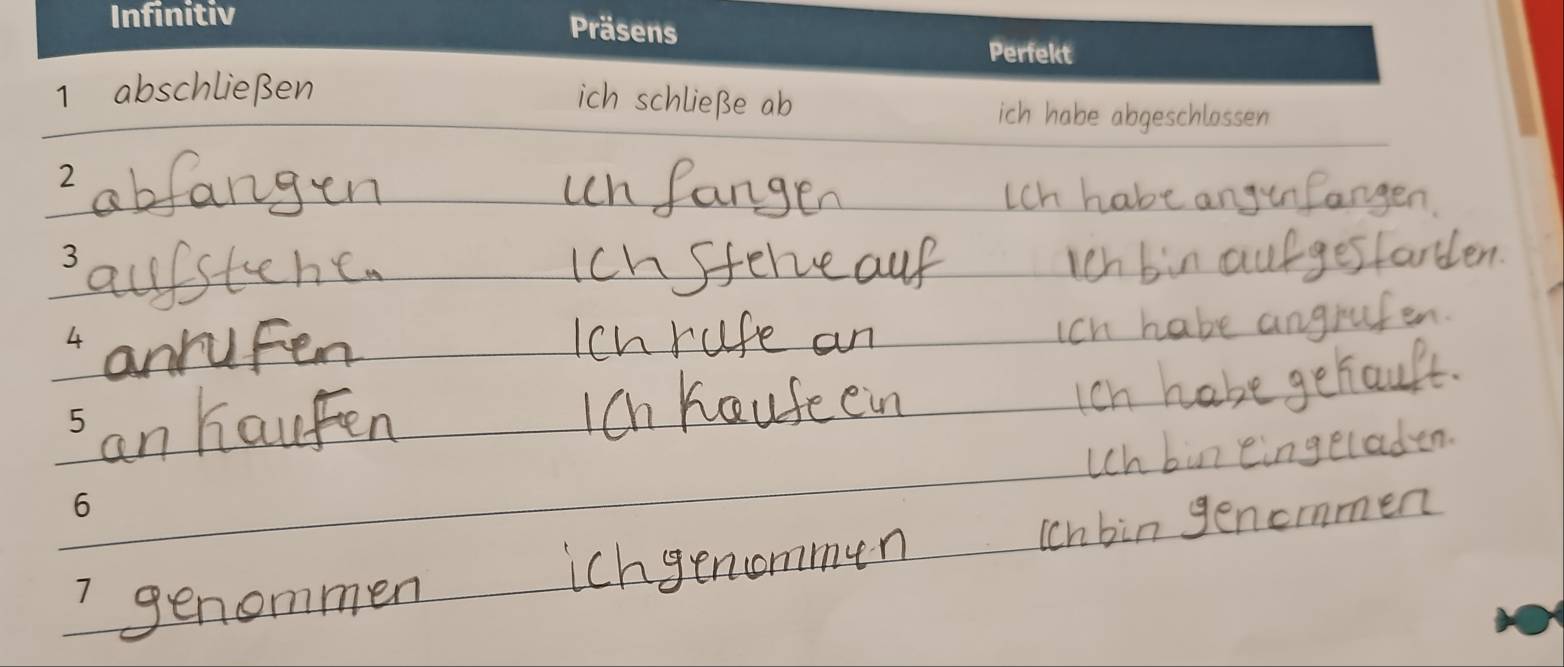 Infinitiv Präsens Perfekt
1 abschließen ich schließe ab ich habe abgeschlossen
2 abfangen ich fangen ich habe angenfangen.
3 aufstehen Ich stehe auf Ich bin aufgestanden.
4 anrufen Ich rufe an ich habe angrufen.
5 an kaufen Ich kaufe ein ich habe gekauft.
6 ich bin eingeladen.
7 genommen ich genommen ich bin genommen